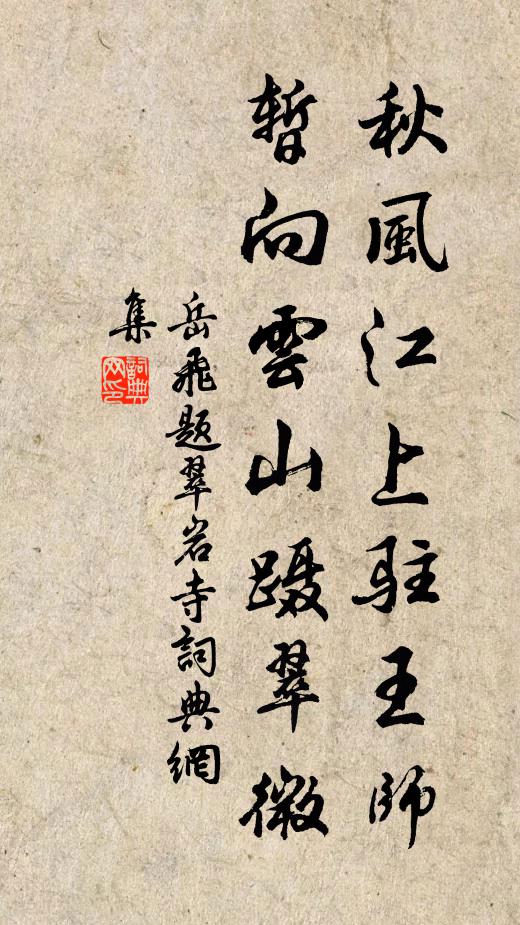 秋風江上驻王師
暫向雲山蹑翠微
岳飛题翠岩寺詞典網
集
詞典網印